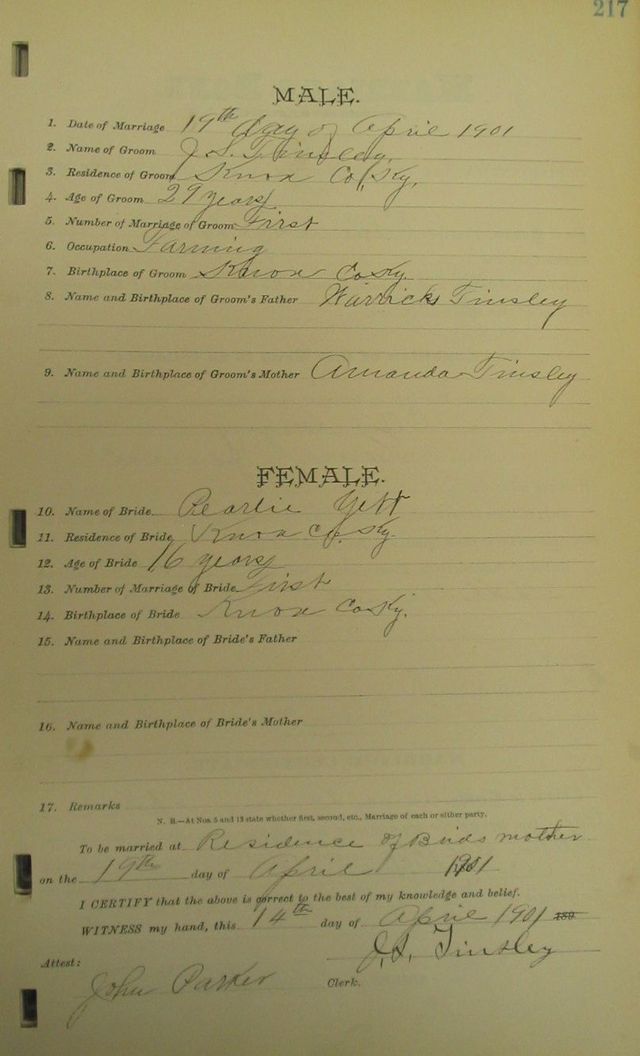 217
MALE.
1. Date of Marriage 19th day of April 1901
2. Name of Groom J. S. Tinsley,
3. Residence of Groom Knox Co, Ky,
4. Age of Groom 29 years
5. Number of Marriage of Groom First
6. Occupation Farming
7. Birthplace of Groom Knox Co Ky.
8. Name and Birthplace of Groom's Father Warrick Tinsley
9. Name and Birthplace of Groom's Mother Amanda Tinsley
FEMALE.
10. Name of Bride Pearlie
11. Residence of Bride Knox Co, Ky.
12. Age of Bride 16 years
13. Number of Marriage of Bride First
14. Birthplace of Bride Knox Co Ky.
15. Name and Birthplace of Bride's Father
16. Name and Birthplace of Bride's Mother
17. Remarks
N. B.—At Nos. 5 and 13 state whether first, second, etc., Marriage of each or either party.
To be married at Residence of Brids mother
on the 19th day of April 1901
I CERTIFY that the above is correct to the best of my knowledge and belief.
WITNESS my hand, this 14th day of April 1901 189
J. S. Tinsley
Attest:
John Parker Clerk.